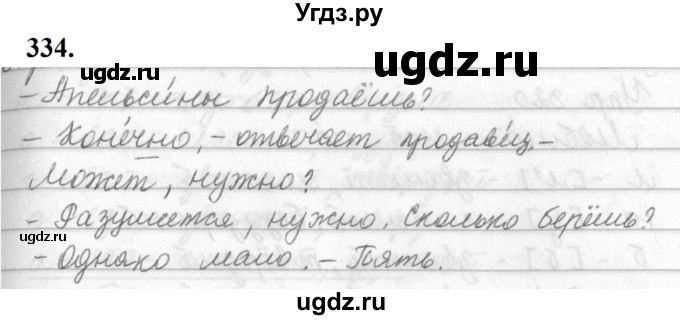 Угдз.ру
ugdz.ru
334.
ugdz.ru
ugdz.ru
- Апельси́ны продаёшь?
- Коне́чно, - отвечает продаве́ц. -
Может, нужно?
- Разумеется, нужно. Сколько берёшь?
- Однако мало. - Пять.
ugdz.ru
ugdz.ru
ugdz.ru